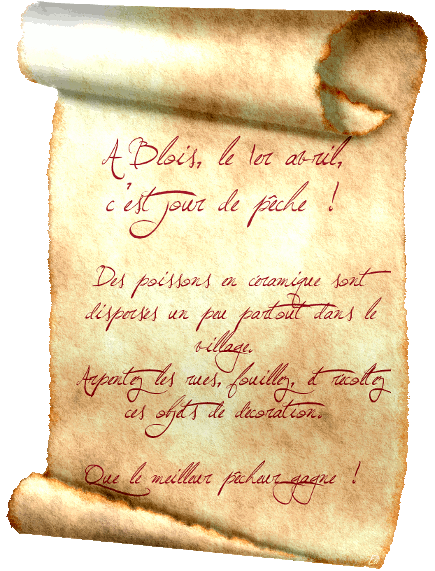 A Blois, le 1er avril,
c'est jour de pêche !
Des poissons en ceramique sont
disperses un peu partout dans le
village.
Arpentez les rues, fouillez, et recoltez
ces objets de decoration.
Que le meilleur pêcheur gagne !